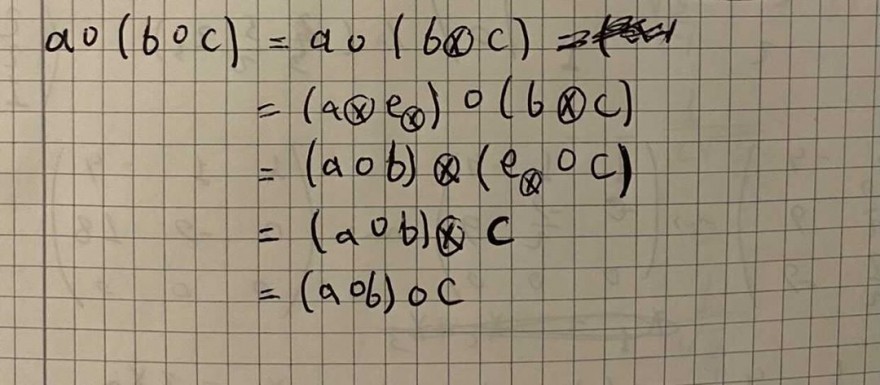 a∘(b∘c) = a∘(b⊗c) =
= (a⊗e⊗)∘(b⊗c)
= (a∘b)⊗(e⊗∘c)
= (a∘b)⊗c
= (a∘b)∘c